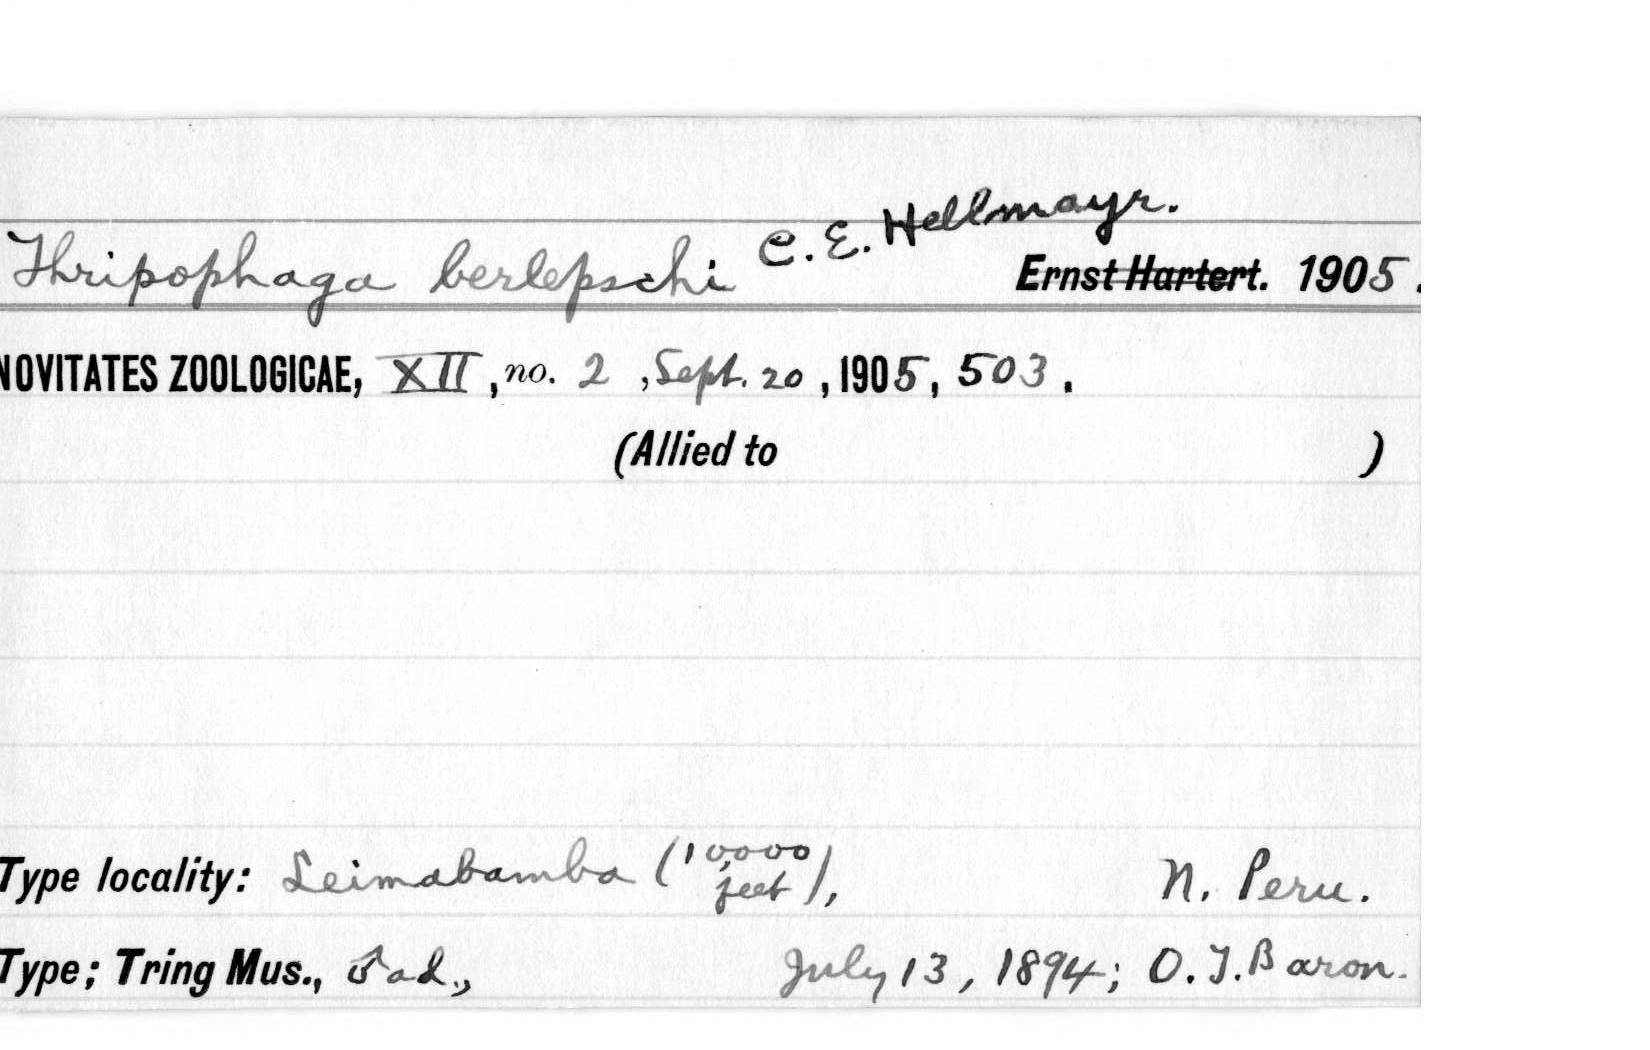 Thripophaga berlepschi C. E. Hellmayr.
Ernst Hartert. 1905.
NOVITATES ZOOLOGICAE, XII, no. 2, Sept. 20, 1905, 503.
(Allied to )
Type locality: Leimabamba (10,000 feet), N. Peru.
Type; Tring Mus., ♂ ad., July 13, 1894; O. T. Baron.